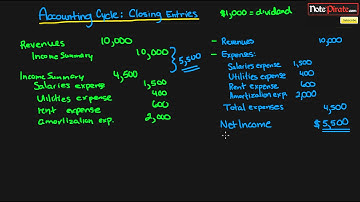 Accounting Cycle: Closing Entries
$1,000 = dividend
NotePirate.com
Revenues 10,000
Income Summary 10,000
5,500
Income Summary 4,500
Salaries expense 1,500
Utilities expense 400
rent expense 600
Amortization exp. 2,000
- Revenues 10,000
- Expenses:
Salaries expense 1,500
Utilities expense 400
Rent expense 600
Amortization exp. 2,000
Total expenses 4,500
Net Income $5,500